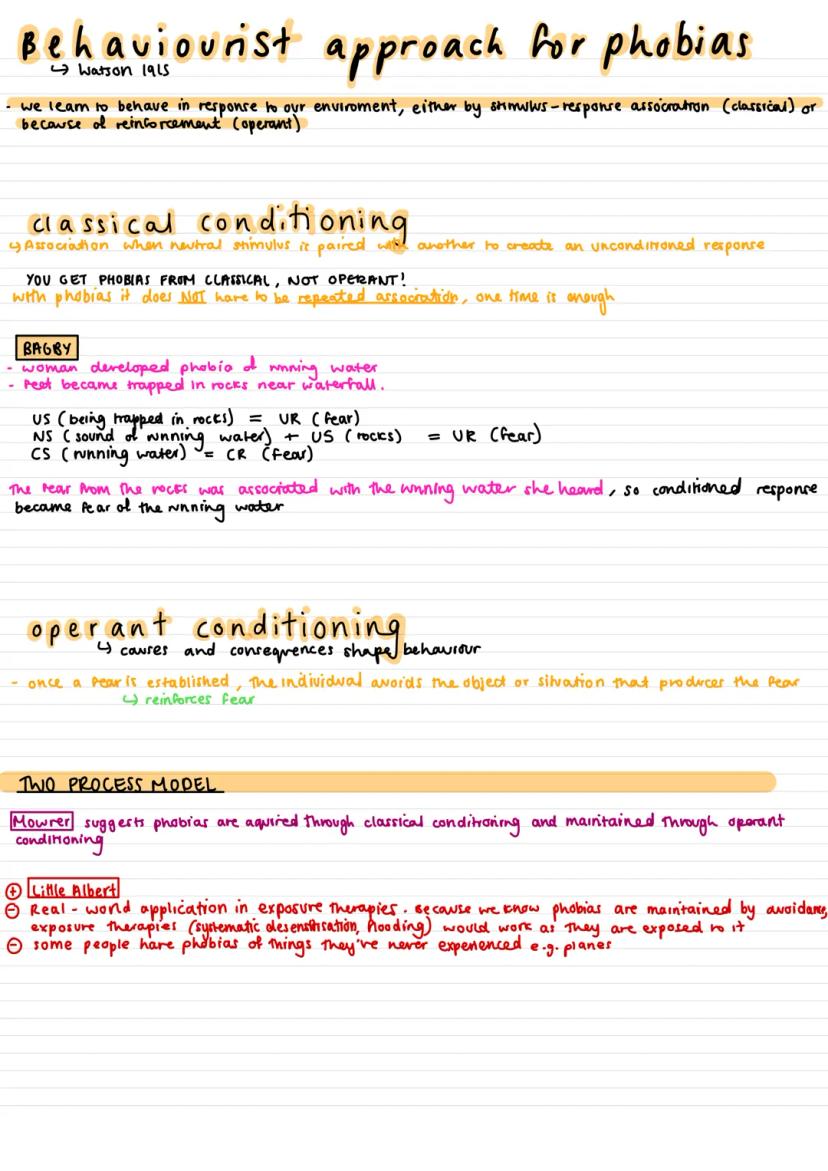 Behaviourist approach for phobias
↳ Watson 1915
- we learn to behave in response to our enviroment, either by stimulus-response association (classical) or
because of reinforcement (operant)
classical conditioning
↳ Association when neutral stimulus is paired with another to create an unconditioned response
YOU GET PHOBIAS FROM CLASSICAL, NOT OPERANT!
with phobias it does NOT have to be repeated association, one time is enough
BAGBY
- woman developed phobia of running water
- Feet became trapped in rocks near waterfall.
US (being trapped in rocks) = UR (fear)
NS (sound of running water) + US (rocks) = UR (fear)
CS (running water) = CR (fear)
The fear from the rocks was associated with the running water she heard, so conditioned response
became fear of the running water
operant conditioning
↳ causes and consequences shape behaviour
- once a fear is established, the individual avoids the object or situation that produces the fear
↳ reinforces fear
TWO PROCESS MODEL
Mowrer suggests phobias are aquired through classical conditioning and maintained through operant
conditioning
⊕ Little Albert
⊖ Real-world application in exposure therapies. Because we know phobias are maintained by avoidance,
exposure therapies (systematic desensitisation, flooding) would work as they are exposed to it
⊖ some people have phobias of things they've never experienced e.g. planes